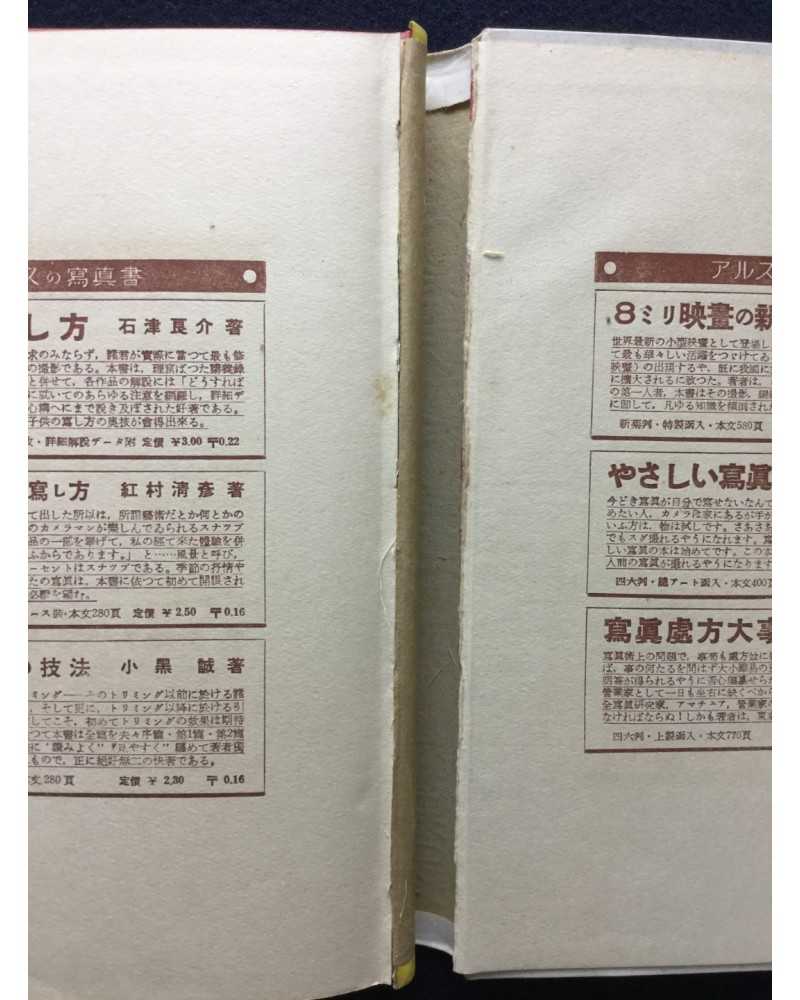 スの寫眞書
し方 石津良介著
求のみならず，諸君が實際に當つて最も修
の撮影である。本書は，
と併せて，各作品の解説には「どうすれば
に就いてのあらゆる注意を網羅し，詳細デ
心構へにまで説き及ぼされた好著である。
子供の寫し方の奥技が會得出來る。
・詳細解説データ附 定價 ￥3.00 〒0.22
寫し方 紅村清彦著
て出した所以は，所謂藝術だとか何とかの
のカメラマンが樂しんでゐられるスナツプ
品の一部を擧げて，私の經て來た體驗を併
ふからであります。」と……風景と呼び，
ーセントはスナツプである。季節の抒情や
たの寫眞は，本書に依つて初めて開眼され
ース裝・本文280頁 定價 ￥2.50 〒0.16
の技法 小黒誠著
ミング――このトリミング以前に於ける諸
，そして更に，トリミング以降に於ける引
してこそ，初めてトリミングの效果は期待
つて本書は全篇を夫々序篇・第1篇・第2篇
に“讀みよく”“見やすく”纒めて著者獨
もので，正に絶好無二の快著である。
文280頁 定價 ￥2.30 〒0.16
アルス
8ミリ映畫の新
世界最新の小型映畫として登場し
て最も華々しい活躍をつゞけてゐ
映畫）の出現するや，既に我國に
に擴大されるに致つた。著者は，
の第一人者，本書はその撮影，
に關して，凡ゆる知識を傾倒された
新菊判・特製函入・本文580頁
やさしい寫眞
今どき寫眞が自分で寫せないなんて
めたい人，カメラは家にあるが手が
いふ方は，物は試しです。さあさあ
でもスグ撮れるやうになれます。寫
しい寫眞の本は始めてです。この本
人前の寫眞が撮れるやうになります
四六判・總アート函入・本文400頁
寫眞處方大事
寫眞術上の問題で，事苟も處方並に
ば，事の何たるを問はず大小難易の
萠芽が得られるやうに苦心編纂せら
營業家として一日も坐右に缺くべか
全寫眞研究家，アマチュア，營業家の
なければならぬ！しかも著者は，東京
四六判・上製函入・本文770頁